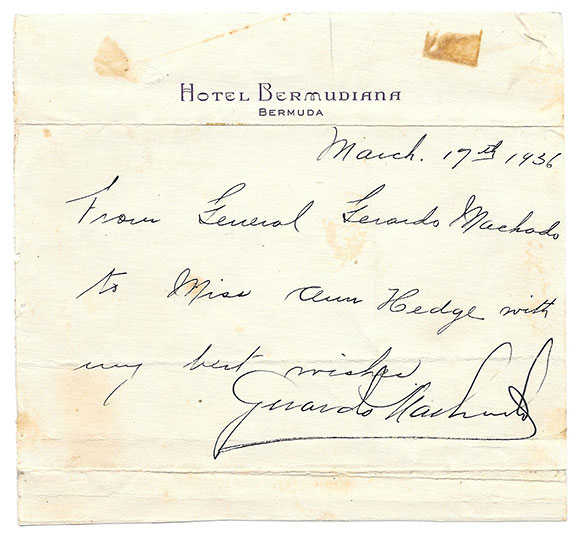 HOTEL BERMUDIANA
BERMUDA
March. 17th 1936
From General Gerardo Machado
to Miss Ann Hedge with
my best wishes
Gerardo Machado